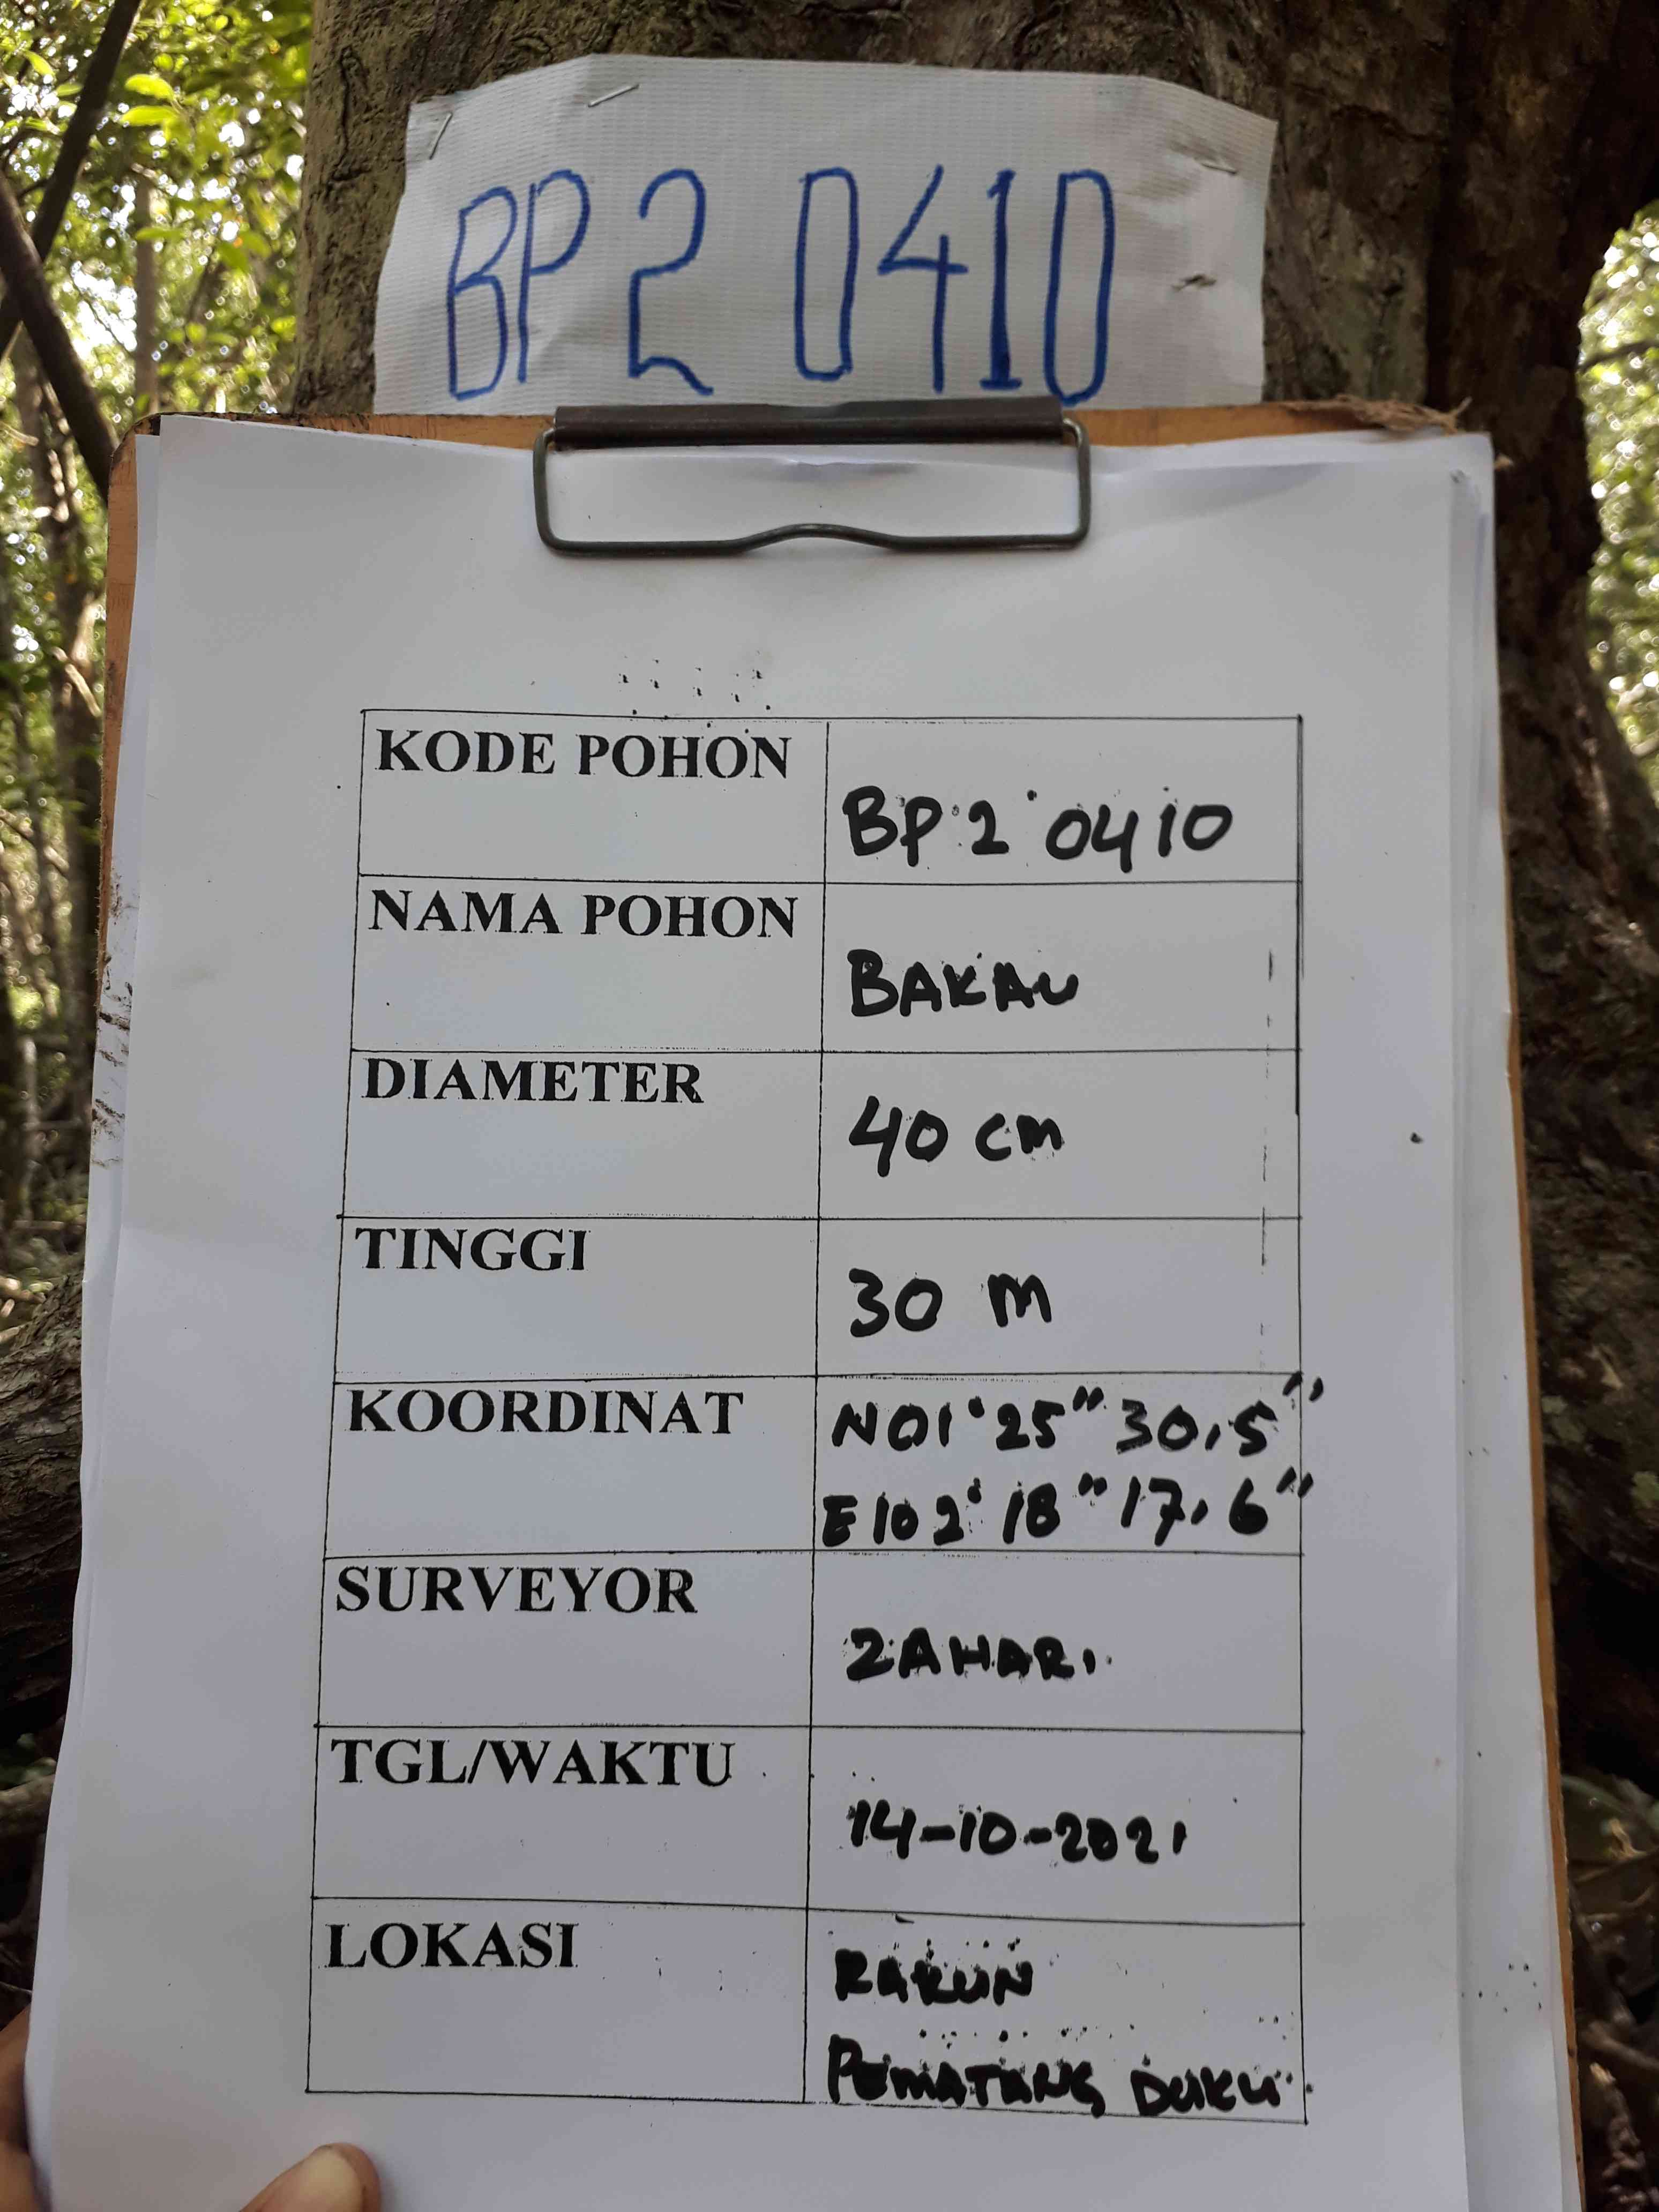 BP 2 0410
KODE POHON
BP 2 0410
NAMA POHON
BAKAU
DIAMETER
40 cm
TINGGI
30 m
KOORDINAT
N01°25"30,5"
E102°18"17,6"
SURVEYOR
ZAHARI
TGL/WAKTU
14-10-2021
LOKASI
RAKUN
PEMATANG DUKU